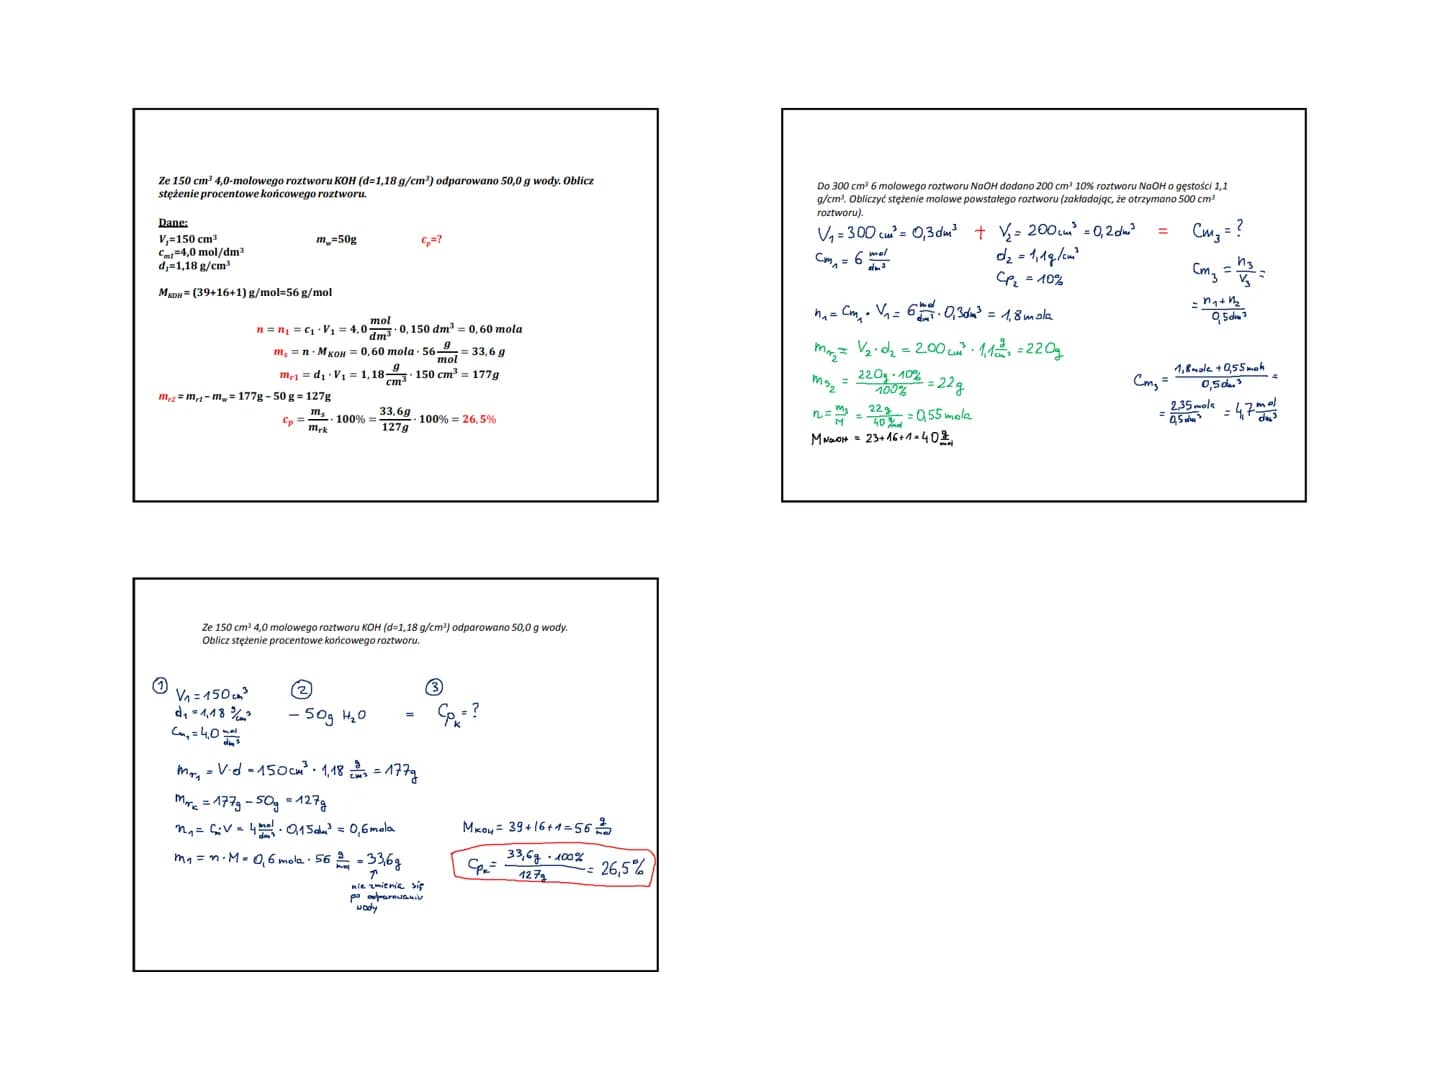 Ze 150 cm³ 4,0-molowego roztworu KOH (d=1,18 g/cm³) odparowano 50,0 g wody. Oblicz
stężenie procentowe końcowego roztworu.
Dane:
V₁=150 cm³ m_w=50g c_p=?
c_m1=4,0 mol/dm³
d₁=1,18 g/cm³
M_KOH = (39+16+1) g/mol=56 g/mol
n = n₁ = c₁ · V₁ = 4,0 mol/dm³ · 0,150 dm³ = 0,60 mola
m_s = n · M_KOH = 0,60 mola · 56 g/mol = 33,6 g
m_r1 = d₁ · V₁ = 1,18 g/cm³ · 150 cm³ = 177g
m_r2 = m_r1 – m_w = 177g – 50 g = 127g
c_p = m_s/m_rk · 100% = 33,6g/127g · 100% = 26,5%
Do 300 cm³ 6 molowego roztworu NaOH dodano 200 cm³ 10% roztworu NaOH o gęstości 1,1
g/cm³. Obliczyć stężenie molowe powstałego roztworu (zakładając, że otrzymano 500 cm³
roztworu).
V₁ = 300 cm³ = 0,3 dm³ + V₂ = 200 cm³ = 0,2 dm³ = Cm₃ = ?
Cm₁ = 6 mol/dm³ d₂ = 1,1g/cm³
Cp₂ = 10%
Cm₃ = n₃/V₃ =
= n₁+n₂/0,5dm³
n₁ = Cm₁ · V₁ = 6 mol/dm³ · 0,3dm³ = 1,8 mola
m_r₂ = V₂ · d₂ = 200 cm³ · 1,1 g/cm³ = 220g
m_s₂ = 220g · 10%/100% = 22g
n = m_s/M = 22g/40 g/mol = 0,55 mola
M NaOH = 23+16+1 = 40 g/mol
Cm₃ = 1,8mola + 0,55mola/0,5dm³ =
= 2,35mola/0,5dm³ = 4,7 mol/dm³
Ze 150 cm³ 4,0 molowego roztworu KOH (d=1,18 g/cm³) odparowano 50,0 g wody.
Oblicz stężenie procentowe końcowego roztworu.
① ② ③
V₁ = 150 cm³
d₁ = 1,18 g/cm³ – 50g H₂O = Cp_k = ?
Cm₁ = 4,0 mol/dm³
m_r₁ = V·d = 150cm³ · 1,18 g/cm³ = 177g
m_rk = 177g – 50g = 127g
n₁ = C₁·V = 4 mol/dm³ · 0,15dm³ = 0,6mola
m₁ = n·M = 0,6 mola · 56 g/mol = 33,6g
↑
nie zmienia się
po odparowaniu
wody
M KOH = 39+16+1 = 56 g/mol
Cp_k = 33,6g · 100%/127g = 26,5%